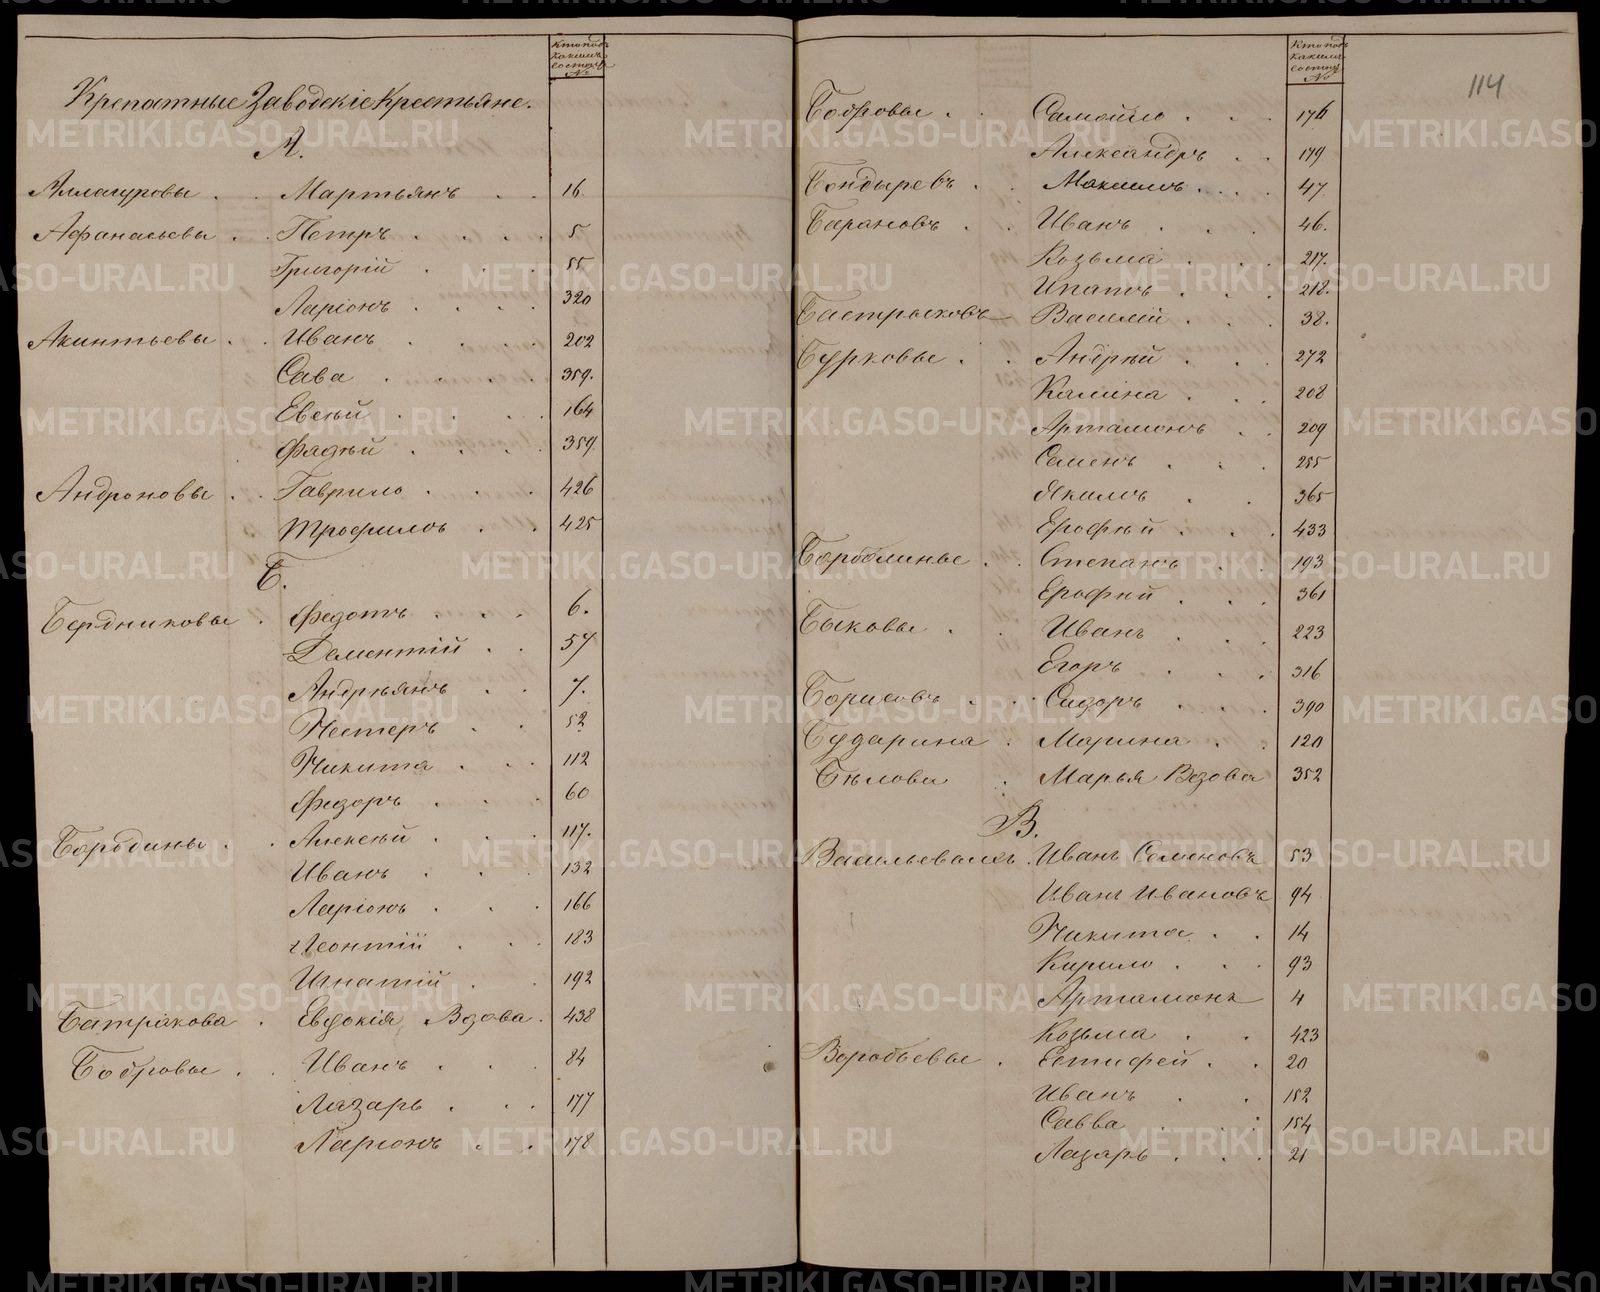 Кто подъ
какимъ
состоитъ
№
Крепатные Заводскіе Крестьяне.
А.
Аллагуровы . . Мартьянъ . . 16
Афанасьевы . . Петръ . . . . 5
Григорій . . . . 55
Ларіонъ . . . . 320
Акинтьевы . . Иванъ . . . . 202
Сава . . . . 359.
Евсѣй . . . . 164
Фадѣй . . . . 359
Андроновы . . Гаврило . . . 426
Трофимъ . . 425
Б.
Бердниковы . Федотъ . . . 6.
Дементій . . 57
Андрѣянъ . . 7.
Нестеръ . . 52
Никита . . . 112
Федоръ . . . 60
Бородины . . Алексѣй . . . 117.
Иванъ . . . 132
Ларіонъ . . . 166
Леонтій . . . 183
Игнатій . . 192
Батракова . Евдокія Вдова . 438
Бобровы . . Иванъ . . . 84
Лазарь . . . 177
Ларіонъ . . . 178
Кто подъ
какимъ
состоитъ
№
114
Бобровы . . Самойло . . . 176
Александръ . . 179
Бондыревъ . . Максимъ . . . . 47
Барановъ . . Иванъ . . . 46.
Козьма . . . 217.
Ипатъ . . . 218.
Бастрыковъ Василій . . . 38.
Бурковы . . Андрѣй . . . 272
Калина . . . 208
Артамонъ . . 209
Семенъ . . . 255
Якимъ . . 365
Ерофѣй . . . 433
Степанъ . . 193
Ерофѣй . . . 361
Быковы . . Иванъ . . . 223
Егоръ . . . 316
Борисовъ . . Сидоръ . . . 390
Бударина . Марина . . 120
Бѣлова . Марья Вдова 352
В.
Иванъ Семеновъ 53
Иванъ Ивановъ 94
Никита . . 14
Кирило . . . 93
Артамонъ 4
Козьма . . 423
Воробьевы . Естифей . . 20
Иванъ . . 152
Савва . . . 154
Лазарь . . . 21
METRIKI.GASO-URAL.RU